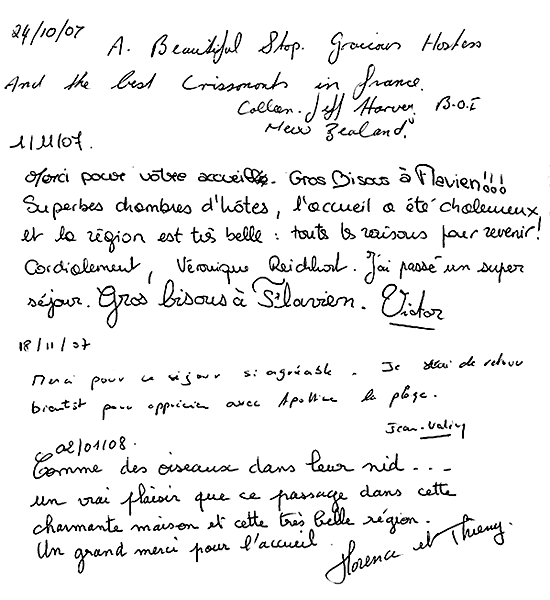 24/10/07
A. Beautiful Stop. Gracious Hostess
And the best Crissonts in france.
Colleen. Jeff Harvey B.O.I
New Zealand.
1/11/07.
Merci pour votre accueil. Gros Bisous à Flavien!!!
Superbes chambres d'hôtes, l'accueil a été chaleureux,
et la région est très belle : toutes les raisons pour revenir!
Cordialement, Véronique. J'ai passé un super
séjour. Gros bisous à Flavien. Victor
18/11/07
Merci pour ce séjour si agréable. Je serai de retour
bientôt pour apprécier avec Apolline la plage.
Jean-
02/01/08.
Comme des oiseaux dans leur nid...
un vrai plaisir que ce passage dans cette
charmante maison et cette très belle région.
Un grand merci pour l'accueil.
Florence et Thierry.